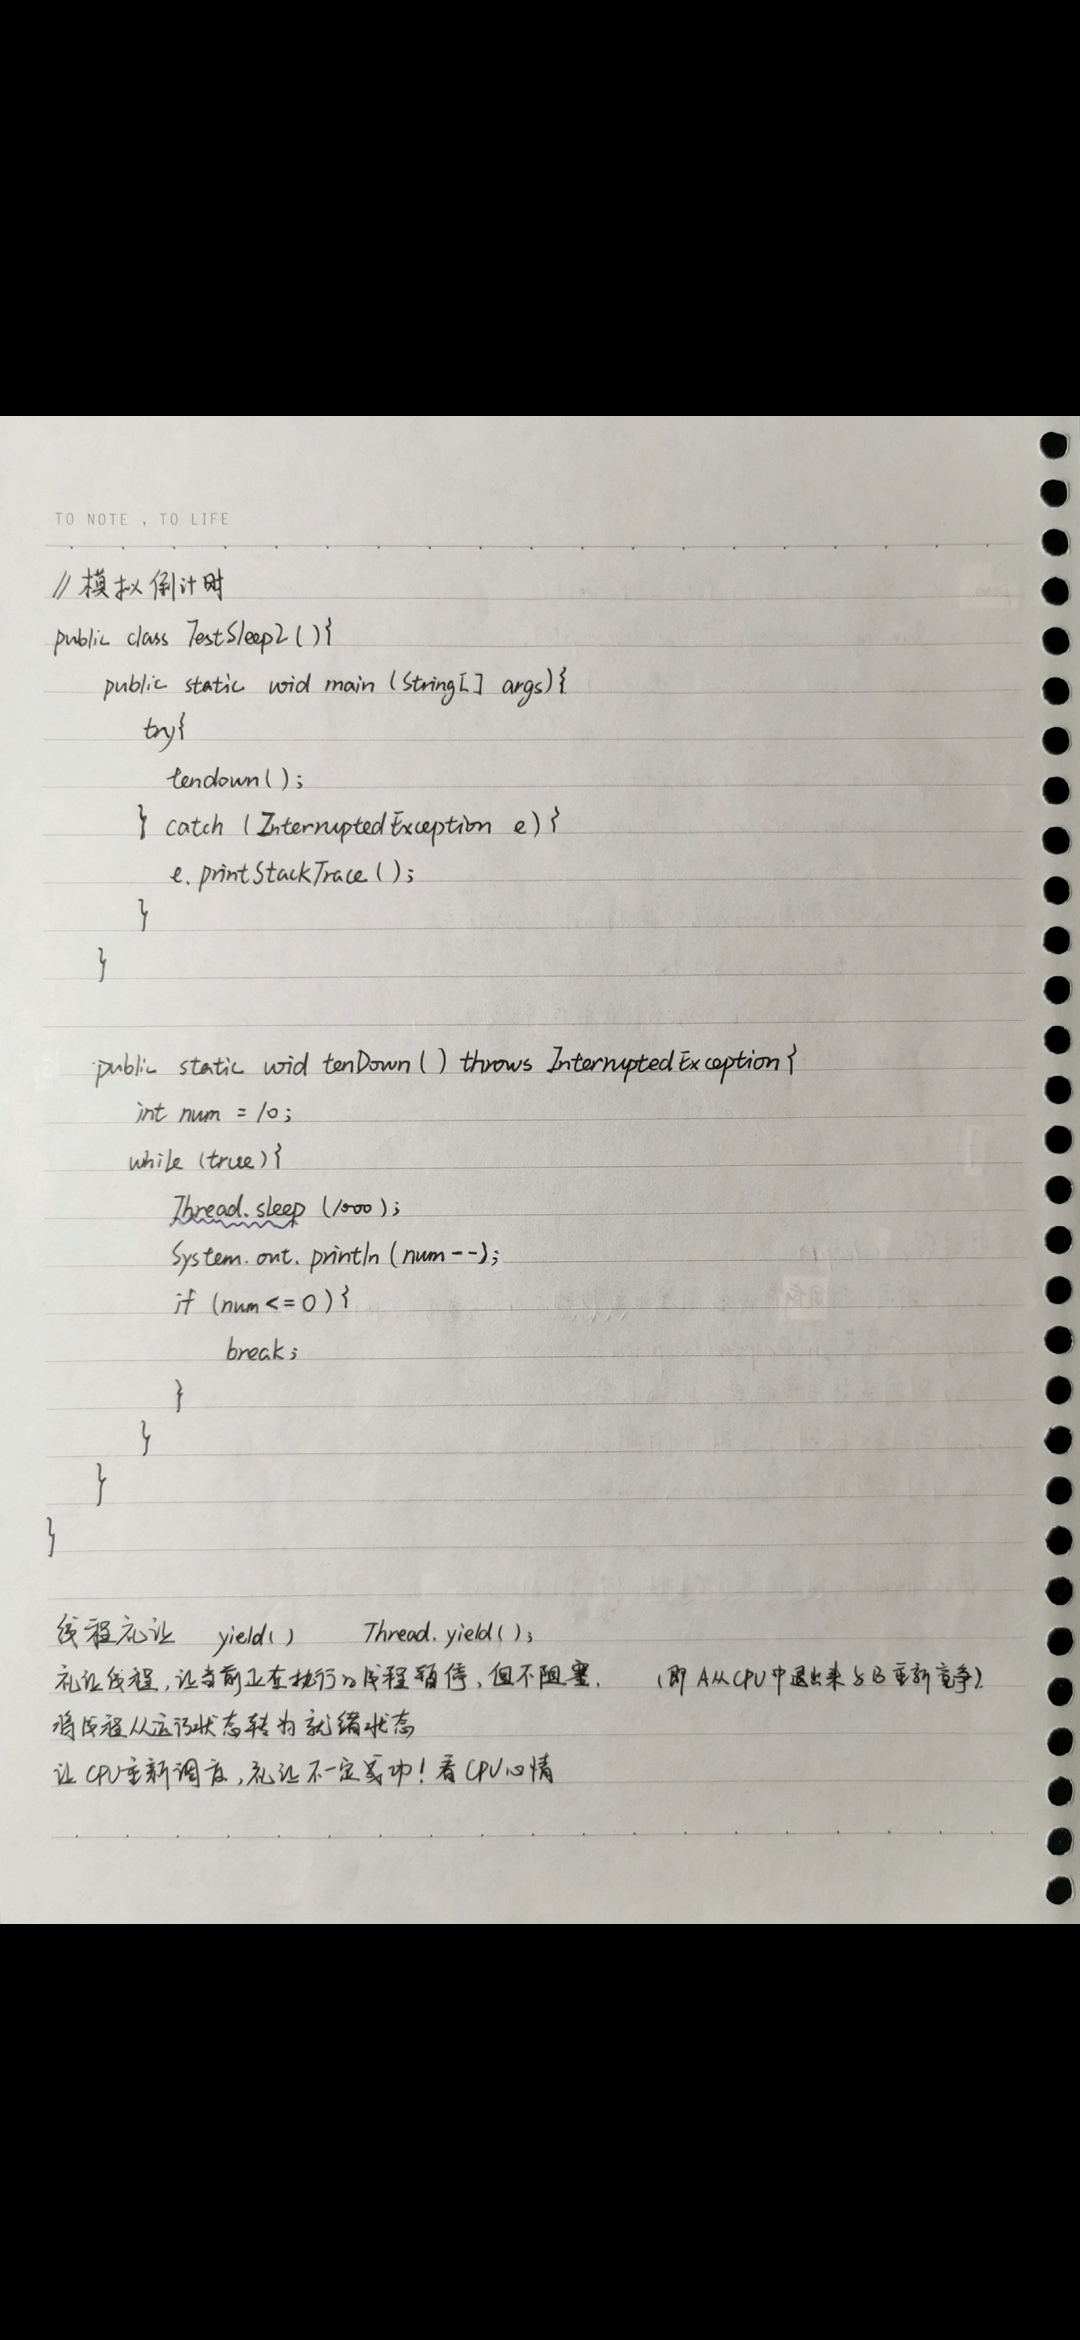 TO NOTE , TO LIFE
// 模拟倒计时
public class TestSleep2(){
public static void main (String[] args){
try{
tendown();
} catch (InterruptedException e){
e.printStackTrace();
}
}
public static void tenDown() throws InterruptedException{
int num = 10;
while (true){
Thread.sleep (1000);
System.out.println(num--);
if (num<=0){
break;
}
}
}
}
线程礼让 yield() Thread.yield();
礼让线程,让当前正在执行的线程暂停,但不阻塞. (即A从CPU中退出来与B重新竞争)
将线程从运行状态转为就绪状态
让CPU重新调度,礼让不一定成功!看CPU心情